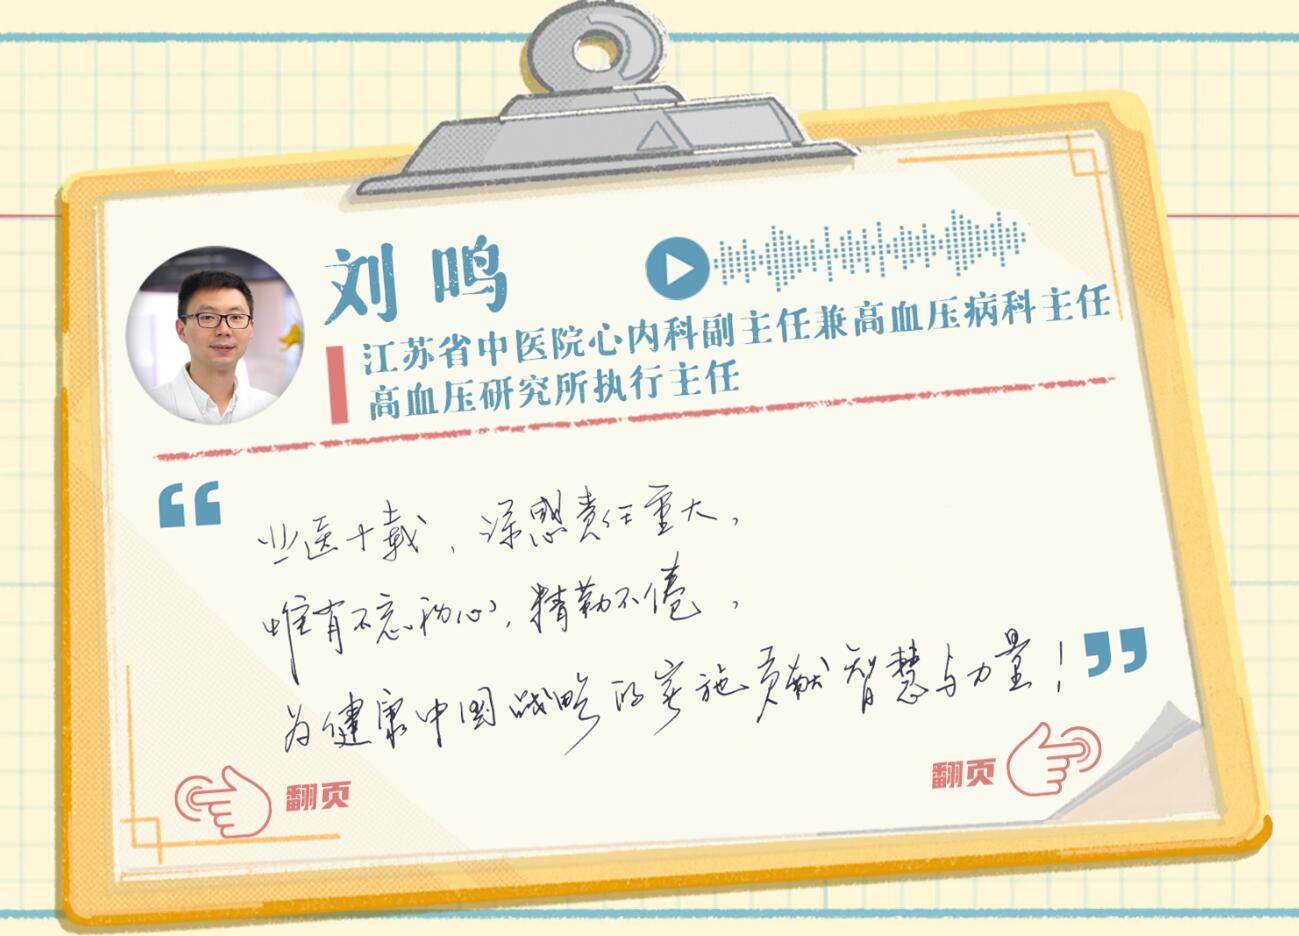 刘鸣
江苏省中医院心内科副主任兼高血压病科主任
高血压研究所执行主任
“
业医十载，深感责任重大，
唯有不忘初心，精勤不倦，
为健康中国战略的实施贡献智慧与力量！
”
翻页
翻页